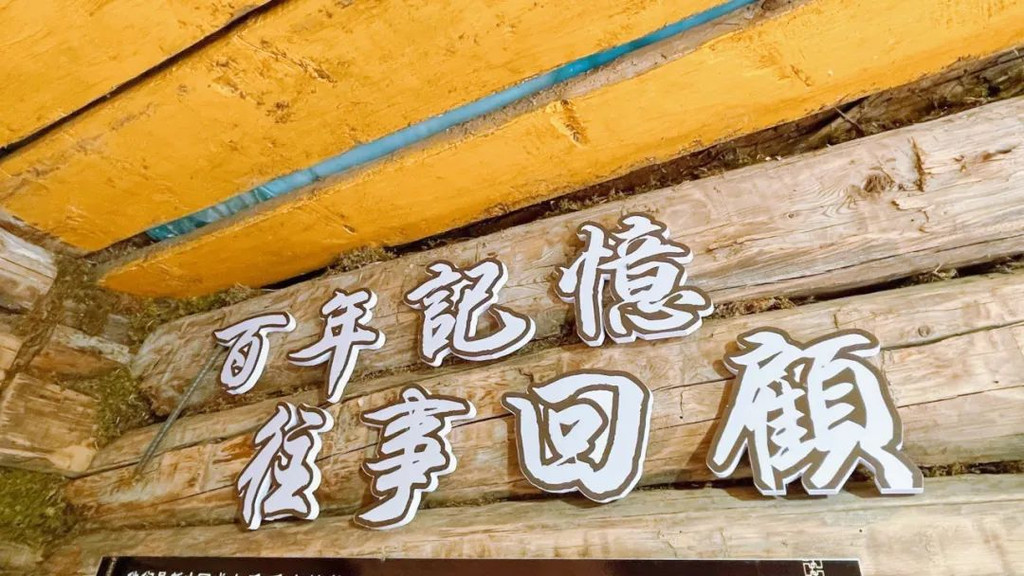 百年記憶
往事回顧